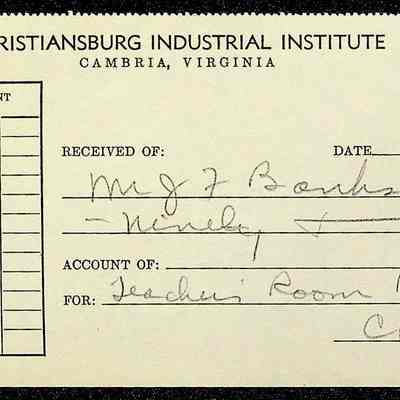 RISTIANSBURG INDUSTRIAL INSTITUTE
CAMBRIA, VIRGINIA
NT
RECEIVED OF: DATE
Mr J F Banks
- Ninety
ACCOUNT OF:
FOR: Teacher's Room
C